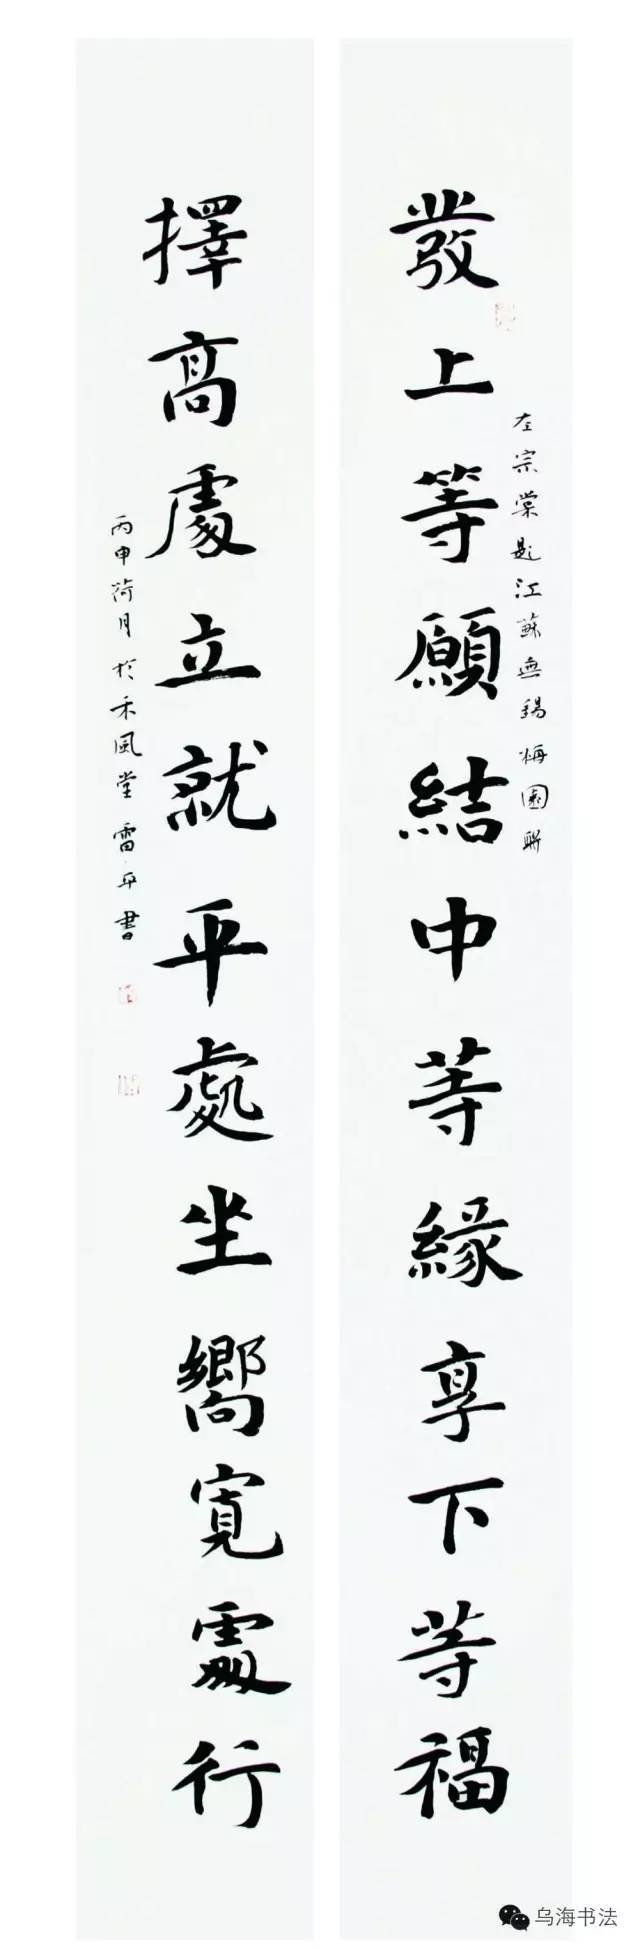 發上等願結中等緣享下等福
左宗棠題江蘇無錫梅園聯
擇高處立就平處坐嚮寬處行
丙申荷月於禾風堂雷平書
乌海书法